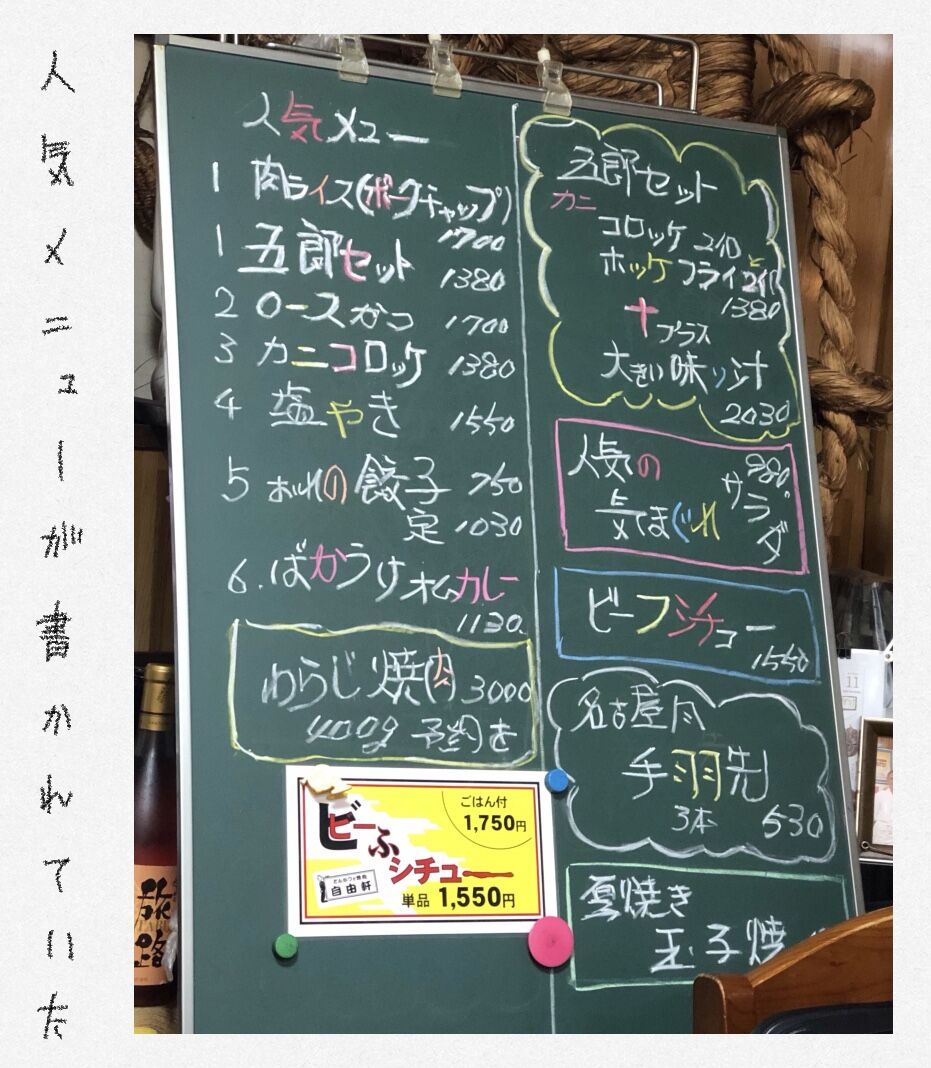 人気メニューが書かれていた
人気メニュー
1 肉ライス(ポークチャップ)
1700
1 五郎セット 1380
2 ロースカツ 1700
3 カニコロッケ 1380
4 塩やき 1550
5 おれの餃子 750
定 1030
6. ばかうけオムカレー
1130
わらじ焼肉 3000
400g 予約を
ビーふ
シチュー
ごはん付
1,750円
自由軒
単品 1,550円
五郎セット
カニ
コロッケ 2個と
ホッケフライ2個
1380
+プラス
大きい味ソ汁
2030
人気の
気まぐれ
サラダ
980.
ビーフシチュー
1550
名古屋風
手羽先
3本 530
厚焼き
玉子焼
旅路
11